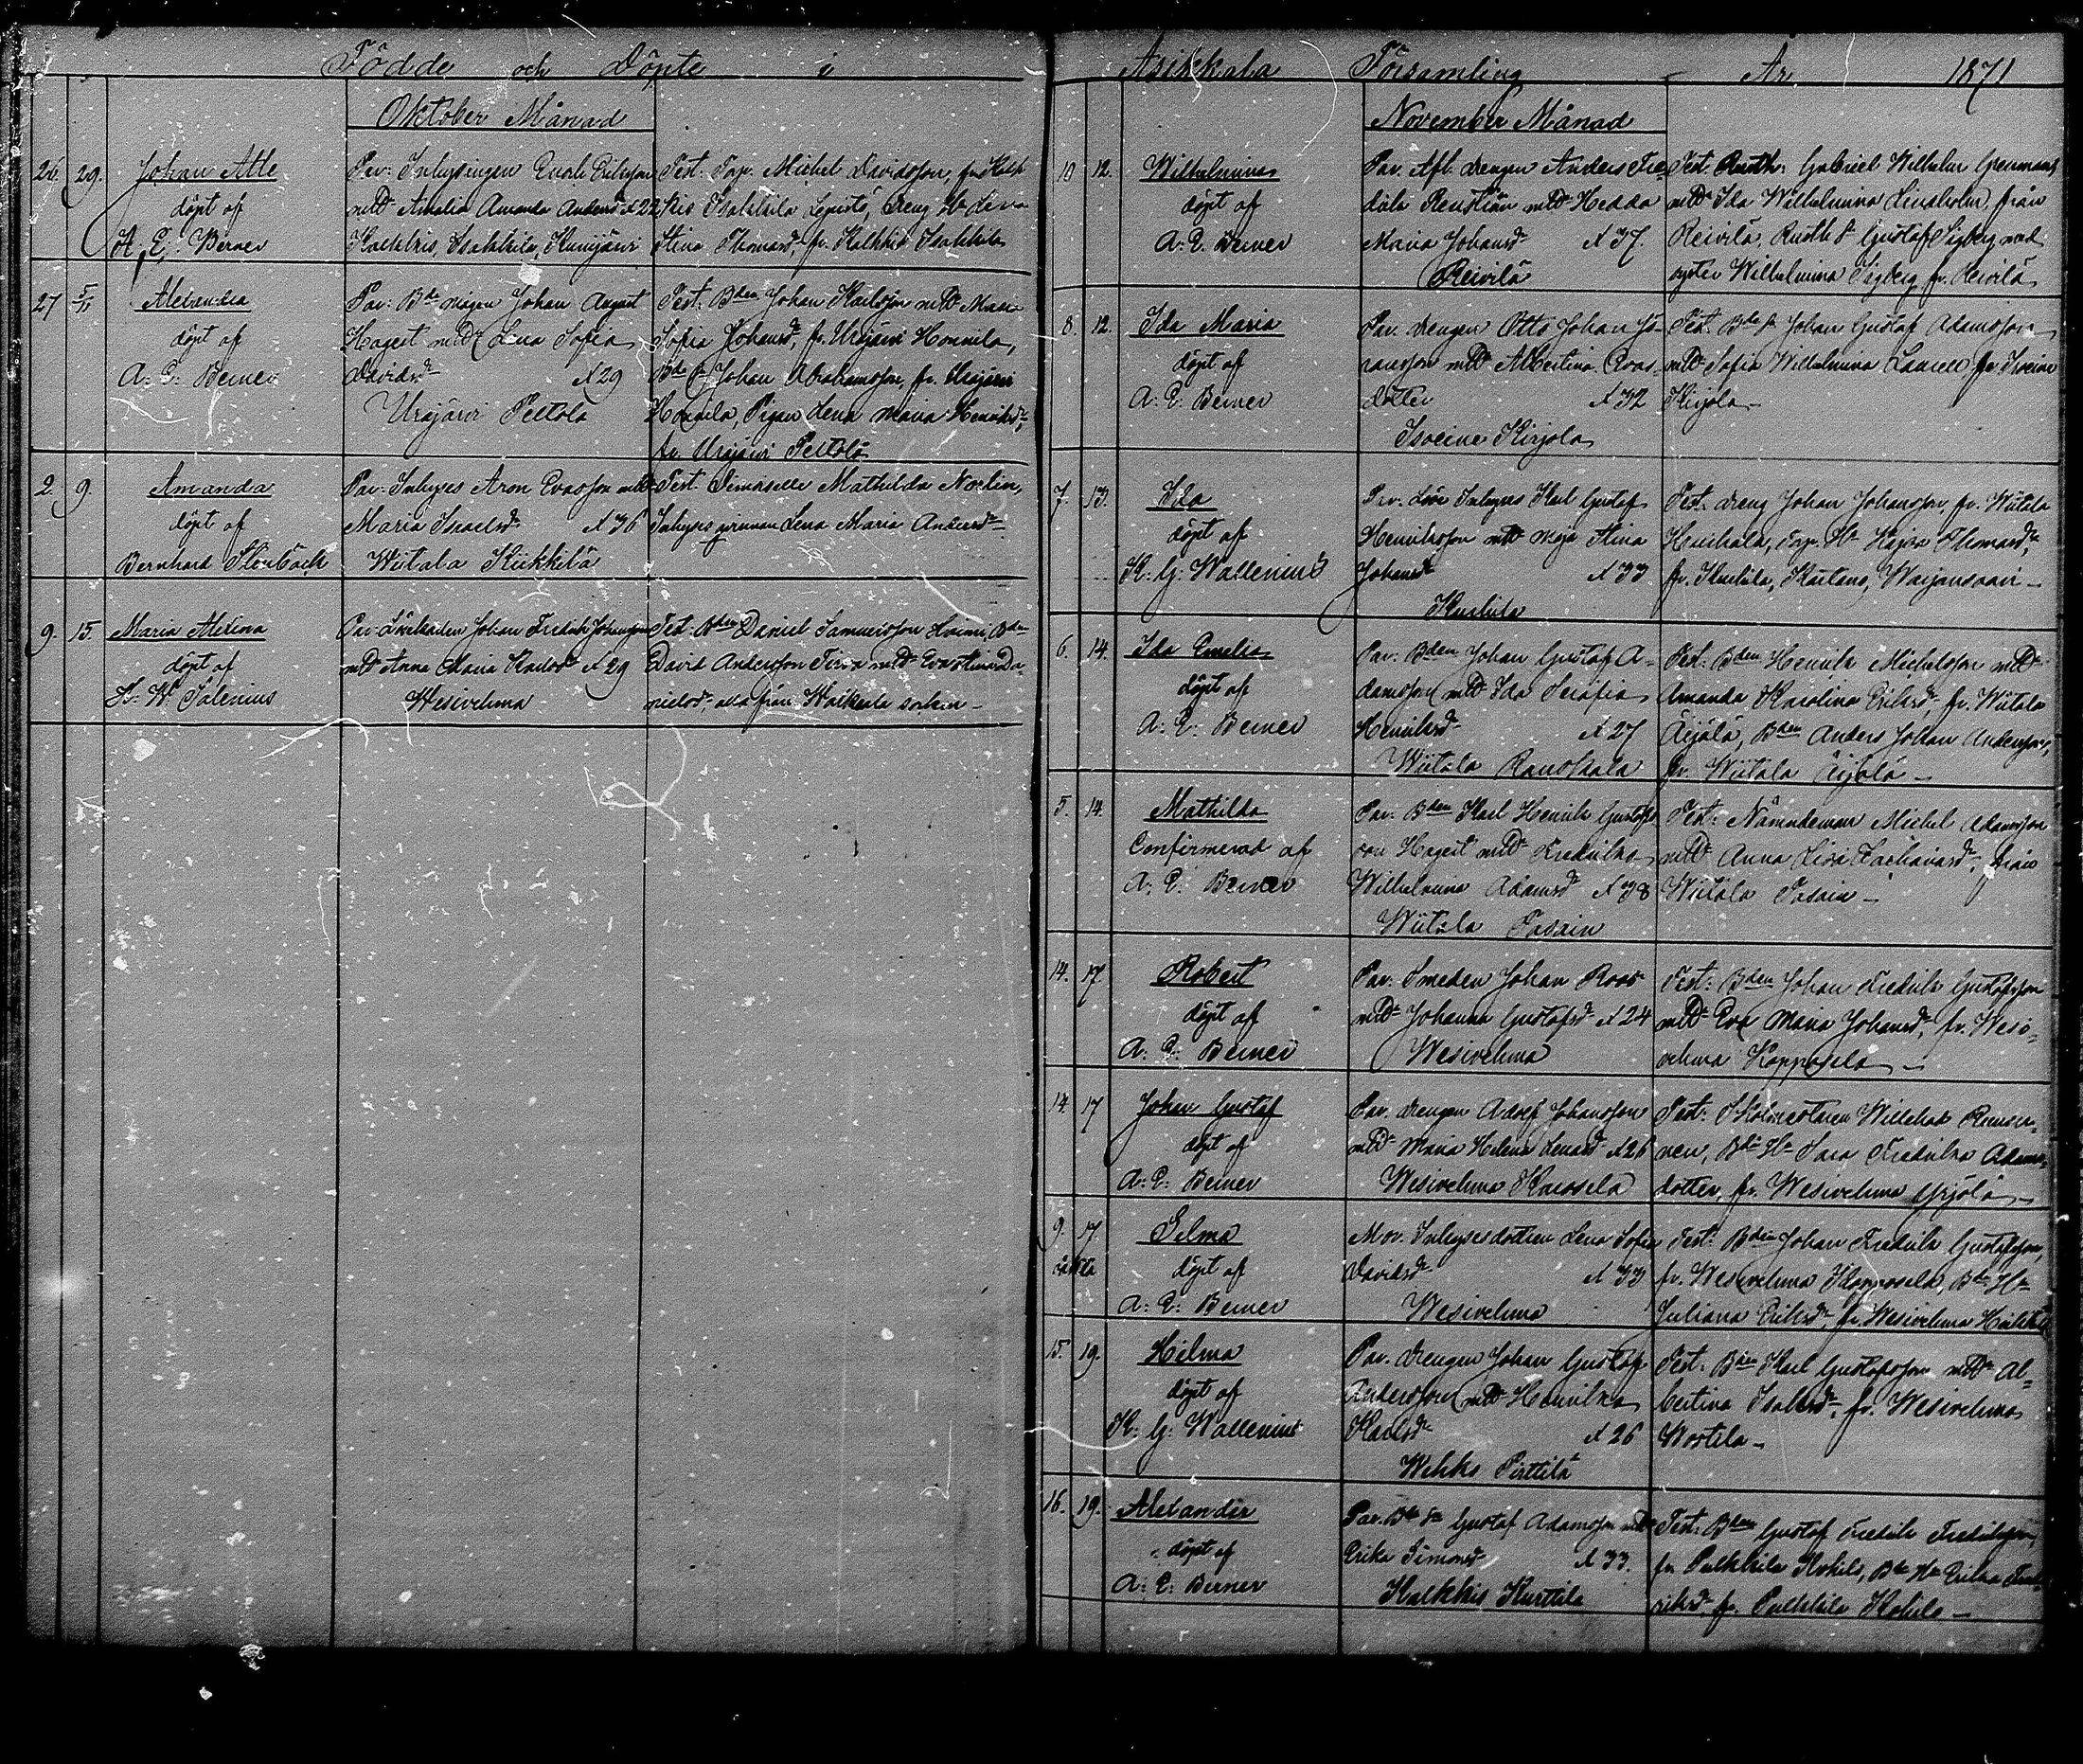 Födde och Döpte i
Oktober Månad
26. 29. Johan Atle
döpt af
A. E. Berner
Par: Inhysingen
mtd Amalia Amanda Andersdr Å 22
Kalkkis, Isakkila,
Test: Torp. Michel Davidsson, fr. Kalk
kis Isakkila
Stina Thomasdr, fr. Kalkkis Isakkila
27 5/11 Alexandra
döpt af
A: E: Berner
Par: Bde mågen Johan August
Hagert mtd Lena Sofia
Davidsdr Å 29
Urajärvi Peltola
Test. Bden Johan Karlsson mtd Maria
Sofia Johansdr, fr. Urajärvi Hommila,
Bde Johan Abrahamsson, fr. Urajärvi
Pigan Lena Maria Henriksdr,
fr. Urajärvi Peltola
2. 9. Amanda
döpt af
Bernhard Stenbäck
Par. Inhyses Aron Evasson mtd
Maria Israelsdr Å 36
Wiitala Kiikkilä
Test. Demoiselle Mathilda Norlin,
Inhyses qvinnan Lena Maria Andersdr
9. 15. Maria Alexina
döpt af
F. W. Salenius
Johan Fredrik Johansson
mtd Anna Maria Karlsdr Å 29
Wesivehma
Test. Bden Daniel Samuelsson
David Andersson mtd Eva Stina Da-
nielsdr, alla från socken
Asikkala Församling År 1871
November Månad
10 12. Wilhelmina
döpt af
A. E. Berner
Par. Afl. drengen Anders Fre-
drik mtd Hedda
Maria Johansdr Å 37.
Reivilä
Test. Rusth: Gabriel Wilhelm Grenman
mtd Ida Wilhelmina Lindholm, från
Reivilä, Rusth S Gustaf Sigberg med
syster Wilhelmina Sigberg, fr. Reivilä
8. 12. Ida Maria
döpt af
A. E. Berner
Par. drengen Otto Johan Jö-
ransson mtd Albertina Roas-
dotter Å 32
Isoeine Kirjola
Test. Bde Johan Gustaf Adamsson
mtd Sofia Wilhelmina Laurell fr Isoeine
Kirjola
7. 13. Ida
döpt af
K. G. Wallenius
Par. Lösa Inhyses Karl Gustaf
Henriksson mtd Maja Stina
Johansdr Å 33
Kurhila
Test. dreng Johan Johansson, fr. Wiitala
Torp. Hu Kajsa Thomasdr,
fr. Kurhila,
6. 14. Ida Emelia
döpt af
A: E: Berner
Par: Bden Johan Gustaf A-
damsson mtd Ida Serafia
Henriksdr Å 27
Wiitala Rauskala
Test: Bden Henrik Michelsson mtd
Amanda Karolina Eriksdr, fr. Wiitala
Äijälä, Bden Anders Johan Andersson,
fr. Wiitala Äijälä
5. 14. Mathilda
Confirmerad af
A: E: Berner
Par: Bden Karl Henrik Gustafs
son Hagert mtd Fredrika
Wilhelmina Adamsdr Å 38
Wiitala Pasain
Test: Nämndeman Michel Adamsson
mtd Anna Lisa Zachariasdr, från
Wiitala Pasain
14. 17. Robert
döpt af
A: E: Berner
Par: Smeden Johan Roos
mtd Johanna Gustafsdr Å 24
Wesivehma
Test: Bden Johan Fredrik Gustafsson
mtd Eva Maria Johansdr, fr. Wesi-
vehma Kopposela
14. 17 Johan Gustaf
döpt af
A: E: Berner
Par. drengen Adolf Johansson
mtd Maria Helena Å 26
Wesivehma Karosela
Test: Skolmästaren Willehad
Bde Hu Sara Fredrika Adams-
dotter, fr. Wesivehma Yrjölä
9. 17. Selma
oäkta
döpt af
A: E: Berner
Mor. Inhysesdottren Lena Sofia
Davidsdr Å 33
Wesivehma
Test: Bden Johan Fredrik Gustafsson,
fr. Wesivehma Kopposela, Bde Hu
Juliana Eriksdr, fr. Wesivehma
15. 19. Hilma
döpt af
K: G: Wallenius
Par. drengen Johan Gustaf
Andersson mtd Henrika
Karlsdr Å 26
Wehko Pirttilä
Test: Bden Karl Gustafsson mtd Al-
bertina Isaksdr, fr. Wesivehma
Wostila
16. 19. Alexander
döpt af
A: E: Berner
Par. Bde Sn Gustaf Adamsson mtd
Erika Simonsdr Å 33.
Kalkkis Kurttila
Test: Bden Gustaf Fredrik Fredriksson,
fr. Pulkkila Kokila, Bde Hu Erika Fred-
riksdr. fr. Pulkkila Kokila